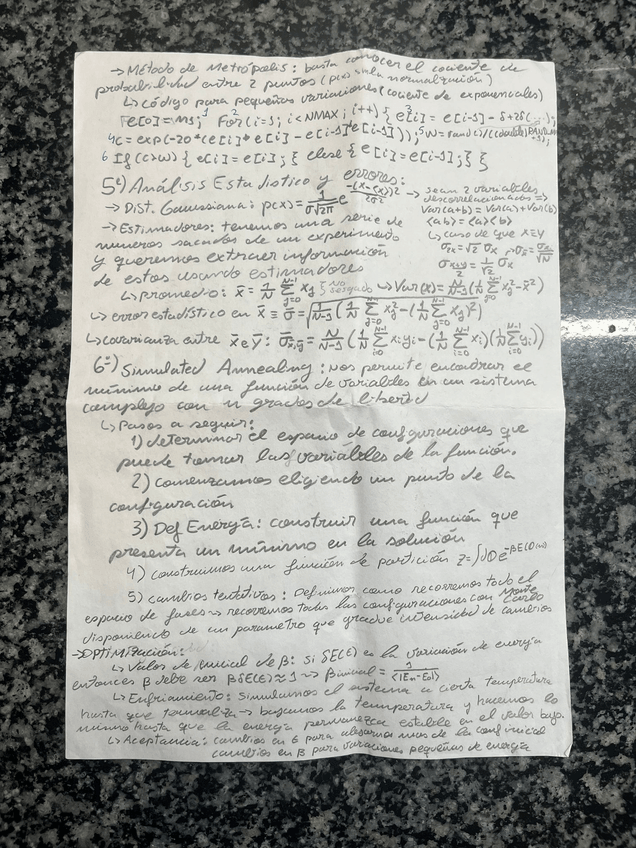 → Método de Metrópolis: basta conocer el cociente de
probabilidad entre 2 puntos (p(x) sin la normalización)
↳ código para pequeñas variaciones (cociente de exponenciales)
e[0]=ms; ¹ For² (i=1; i<NMAX; i++) { e³[i] = e[i-1] - δ+2δ
4 C = exp(-20*(e[i]* e[i] - e[i-1]*e[i-1])); 5 W = rand()/((double)
6 If (C>W) { e[i]=e[i]; } else { e[i]=e[i-1]; } }
5º) Análisis Estadístico y errores:
→ Dist. Gaussiana: p(x) = 1/(σ√2π) e^(-(x-⟨x⟩)²/2σ²)
→ sean 2 variables
descorrelacionadas ⇒
Var(a+b) = Var(a)+Var(b)
⟨ab⟩ = ⟨a⟩⟨b⟩
↳ caso de que x≡y
σ2x = √2 σx
σ(x+y)/2 = 1/√2 σx
→ Estimadores: tenemos una serie de
números sacados de un experimento
y queremos extraer información
de estos usando estimadores
↳ promedio: x̄ = 1/N ∑(j=0, N-1) xj } no sesgado ↳ Var(x) = N/(N-1) (1/N ∑(j=0, N-1) xj² - x̄²)
↳ error estadístico en x̄ ≡ σ̄ = √(N/(N-1) (1/N ∑(j=0, N-1) xj² - (1/N ∑(j=0, N-1) xj)²))
↳ covarianza entre x̄ e ȳ: σ̄x̄,ȳ = N/(N-1) (1/N ∑(i=0, N-1) xi yi - (1/N ∑(i=0, N-1) xi)(1/N ∑(i=0, N-1) yi))
6º) Simulated Annealing: nos permite encontrar el
mínimo de una función de variables en un sistema
complejo con n grados de libertad
↳ Pasos a seguir:
1) determinar el espacio de configuraciones que
puede tomar las variables de la función.
2) comenzamos eligiendo un punto de la
configuración
3) Def Energía: construir una función que
presenta un mínimo en la solución
4) construimos una función de partición Z=∫dΩe^-βE(Ω)
5) cambios tentativos: Definimos como recorremos todo el
espacio de fases → recorremos todas las configuraciones con Monte Carlo
disponiendo de un parametro que gradue intensidad de cambios
→ Optimización:
↳ Valor de inicial de β: si δE(C) es la variación de energía
entonces β debe ser βδE(C)≈1 → βinicial = 1/|Em-E0|
↳ Enfriamiento: simulamos el sistema a cierta temperatura
hasta que termaliza → bajamos la temperatura y hacemos lo
mismo hasta que la energía permanezca estable en el valor bajo.
↳ Aceptancia: cambios en para alejarnos mas de la conf inicial
cambios en β para variaciones pequeñas de energía